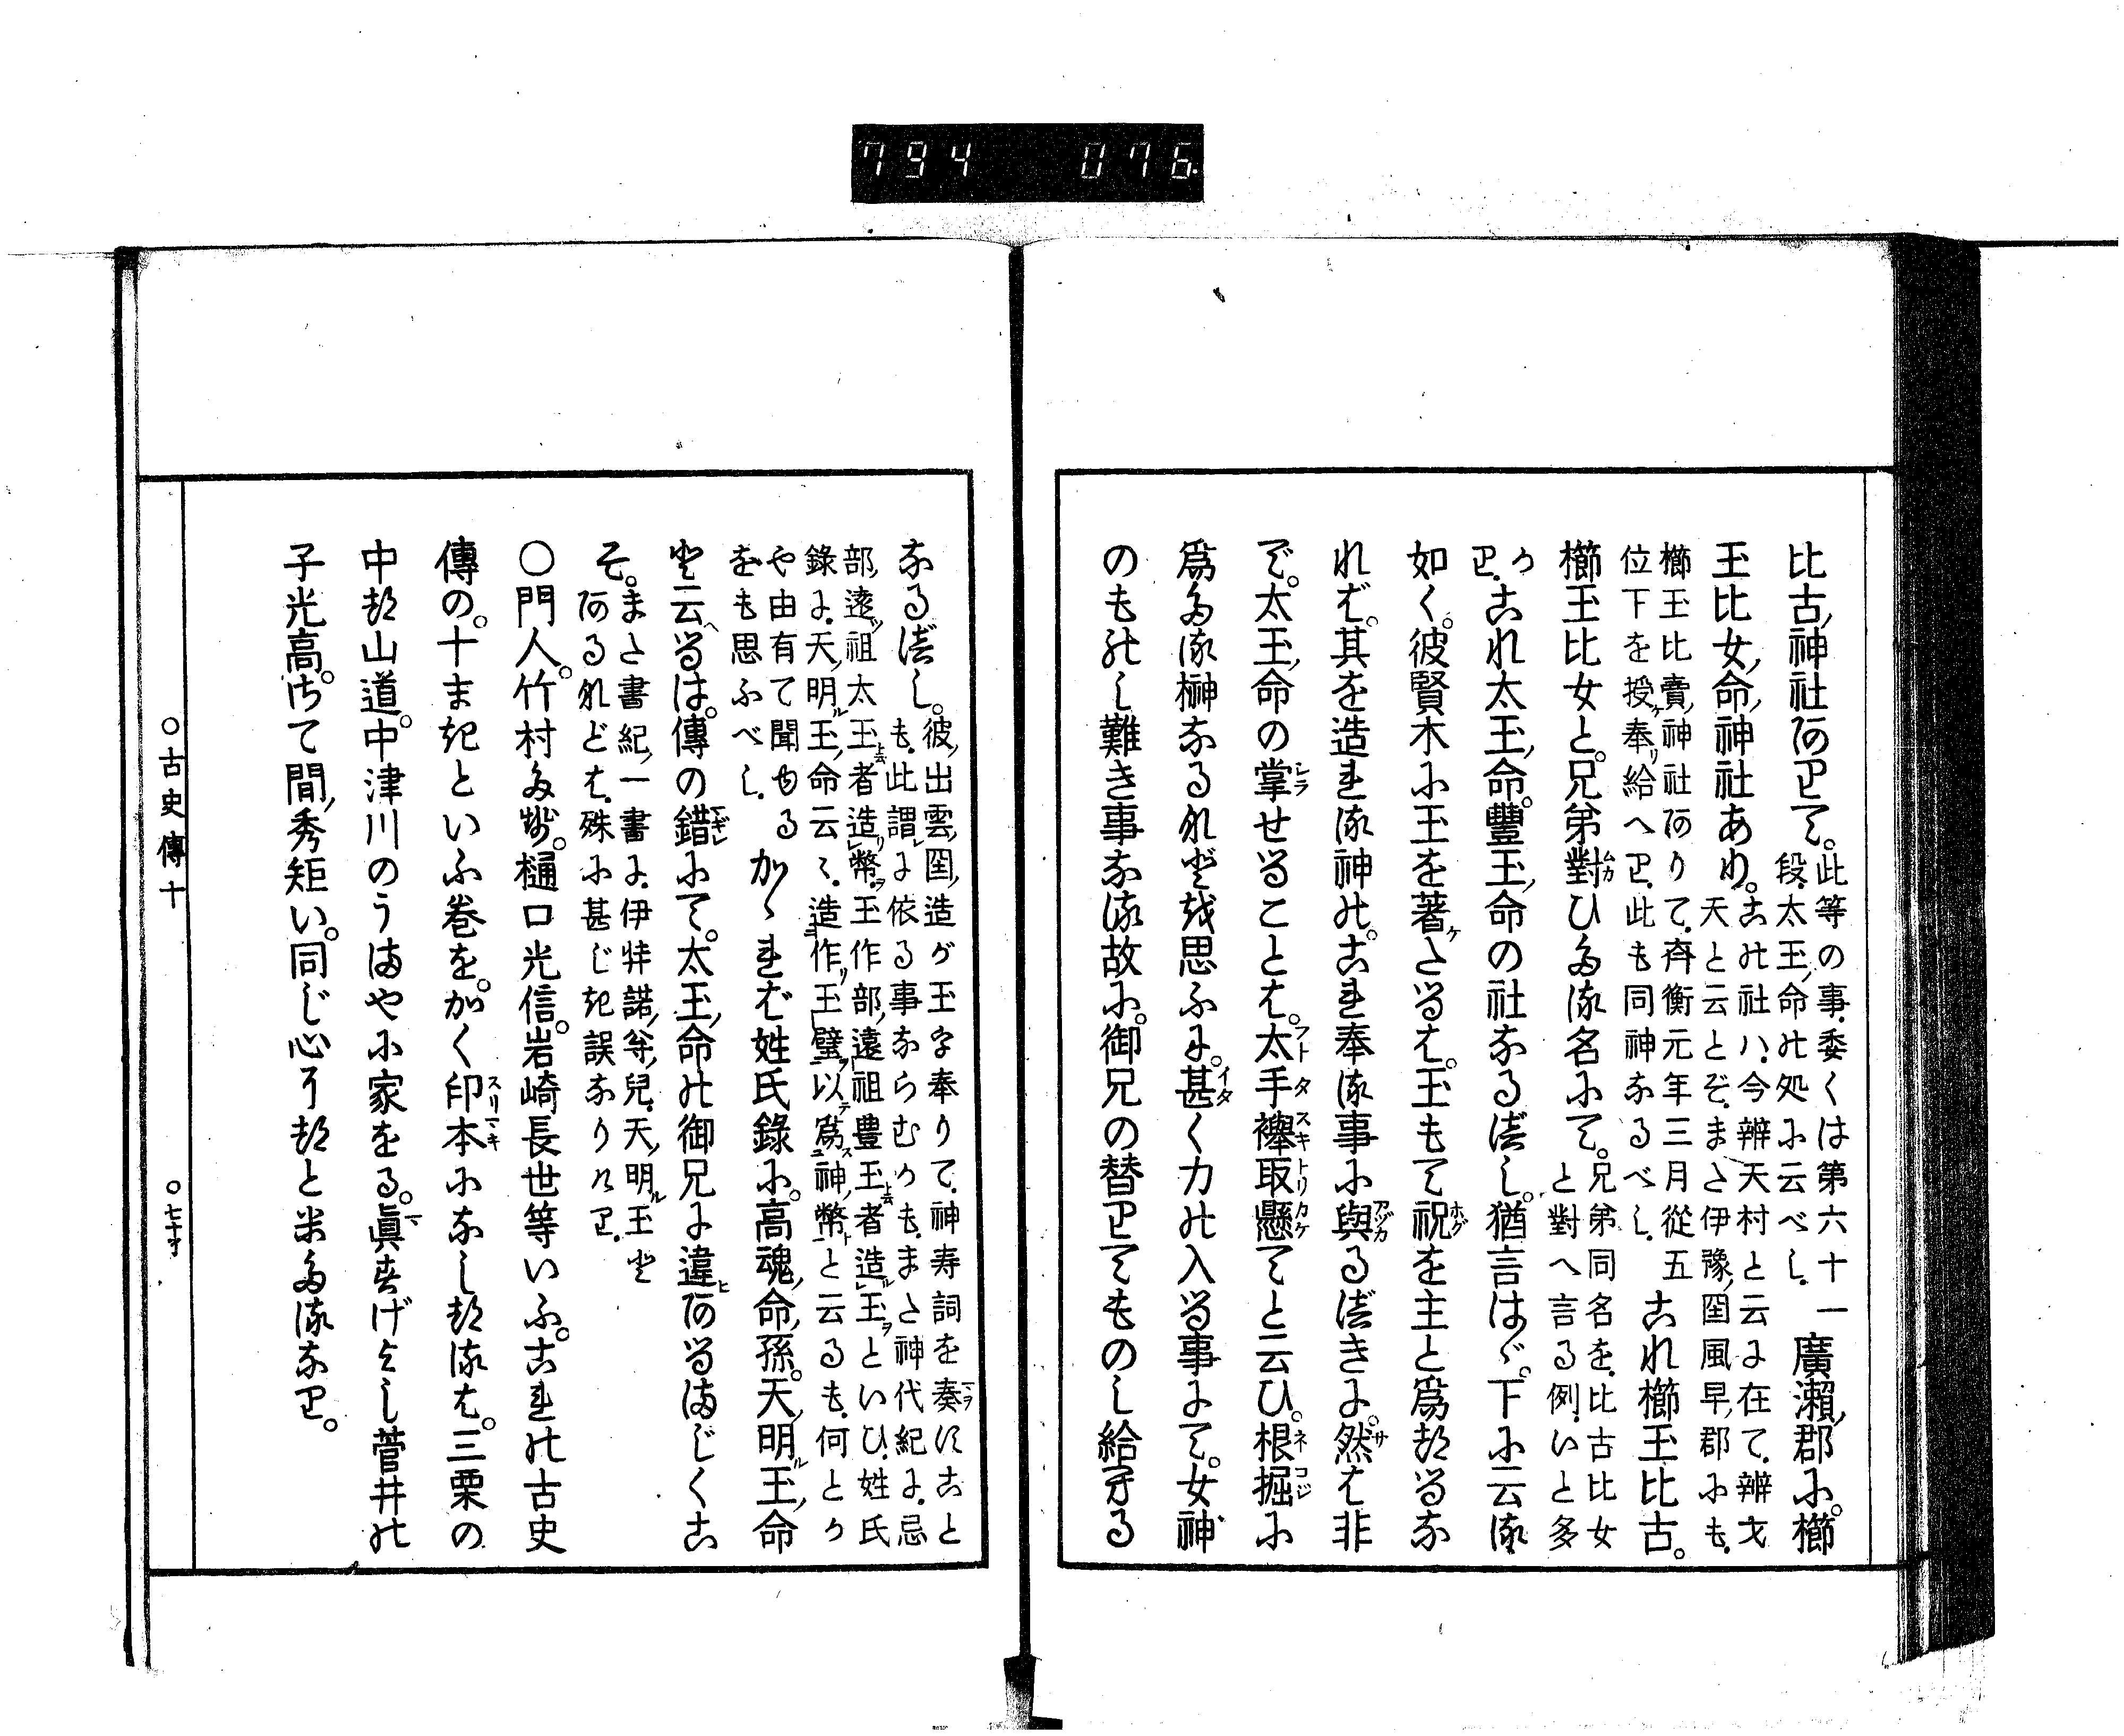 794 076
比古神社ありて。此等の事委くは第六十一段太玉命の処に云べし。廣瀬郡に。櫛
玉比女命神社あり。この社ハ今辨天村と云に在て辨才天と云とぞまた伊豫国風早郡にも
櫛玉比賣神社ありて齊衡元年三月從五位下を授奉り給へり此も同神なるべし これ櫛玉比古。
櫛玉比女と。兄弟對ひたる名にて。兄弟同名を比古比女と對へ言る例いと多
かり これ太玉命。豐玉命の社なるべし。猶言はゞ。下に云る
如く。彼賢木に玉を著たるは。玉もて祝を主と爲たるな
れば。其を造れる神の。これ奉る事に與るべきに。然は非
で。太玉命の掌せることは。太手襷取懸てと云ひ。根掘に
爲たる榊なるれど越思ふに。甚く力の入る事にて。女神
のものし難き事なる故に。御兄の替りてものし給へる
なるべし。彼出雲国造が玉を奉りて神寿詞を奏すことも此謂に依る事ならむかもまた神代紀に忌
部遠祖太玉者造幣玉作部遠祖豊玉者造玉といひ姓氏
錄に天明玉命云々造作玉璧以爲神幣と云るも何とか
や由有て聞ゆるをも思ふべし かゝれば姓氏錄に。高魂命孫。天明玉命
と云へるは。傳の錯にて。太玉命の御兄に違ひあるまじくこ
そ。また書紀一書に伊弉諾尊兒天明玉とあるれどは殊に甚じき誤なりけり
〇門人。竹村多勢。樋口光信。岩崎長世等いふ。これの古史
傳の。十まきといふ巻を。かく印本になしたるは。三栗の
中た山道。中津川のうまやに家をる。眞まげよし菅井の
子光高。はて間秀矩い。同じ心行たと米たるなり。
〇古史傳十
〇七十才